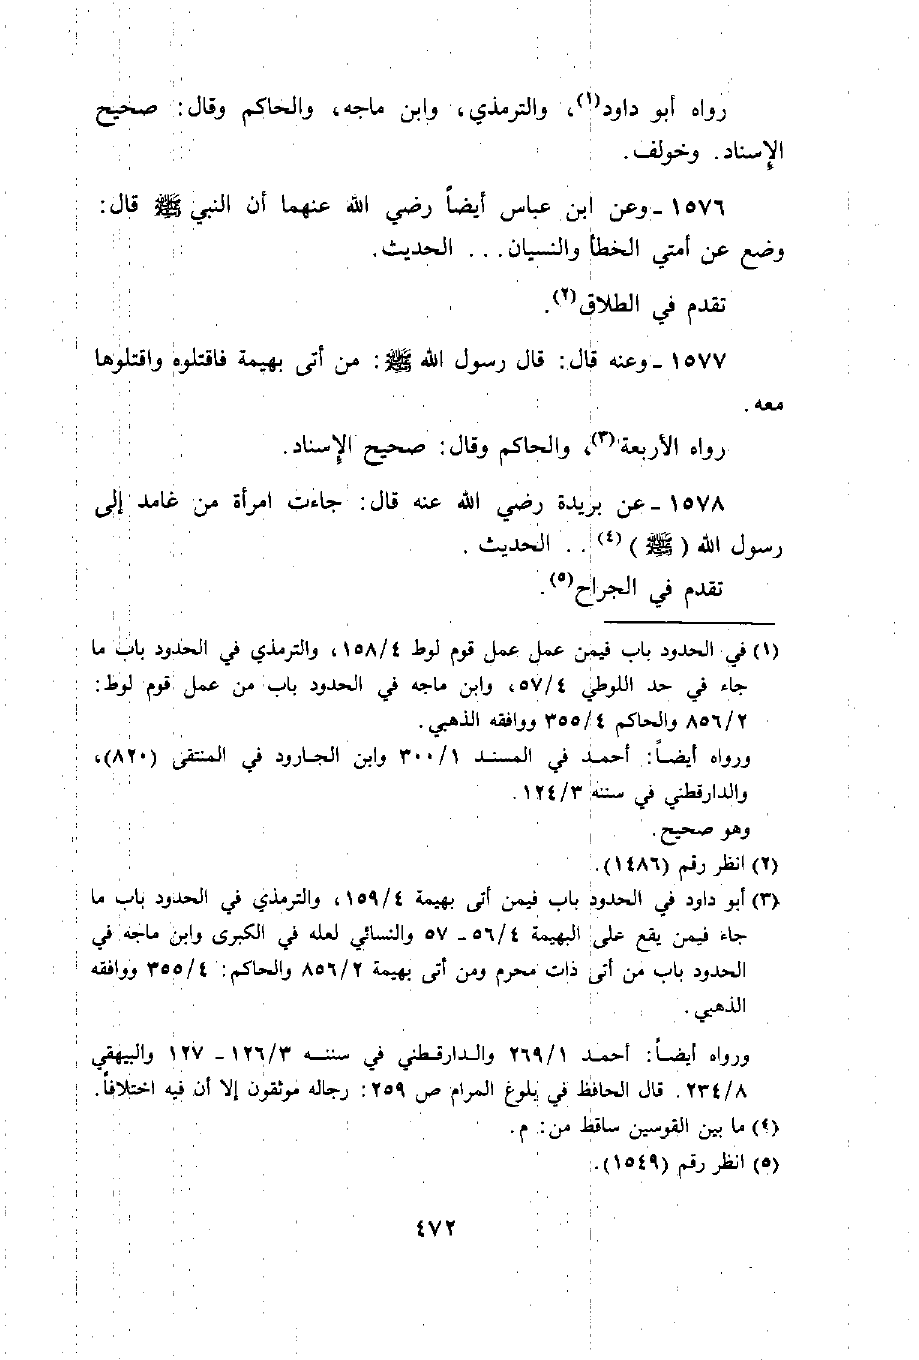 رواه أبو داود(١)، والترمذي، وابن ماجه، والحاكم وقال: صحيح
الإسناد. وخولف.
١٥٧٦ - وعن ابن عباس أيضاً رضي الله عنهما أن النبي ﷺ قال:
وضع عن أمتي الخطأ والنسيان... الحديث.
تقدم في الطلاق(٢).
١٥٧٧ - وعنه قال: قال رسول الله ﷺ: من أتى بهيمة فاقتلوه واقتلوها
معه.
رواه الأربعة(٣)، والحاكم وقال: صحيح الإسناد.
١٥٧٨ - عن بريدة رضي الله عنه قال: جاءت امرأة من غامد إلى
رسول الله ( ﷺ ) (٤) . . الحديث .
تقدم في الجراح(٥).
(١) في الحدود باب فيمن عمل عمل قوم لوط ١٥٨/٤، والترمذي في الحدود باب ما
جاء في حد اللوطي ٥٧/٤، وابن ماجه في الحدود باب من عمل قوم لوط:
٨٥٦/٢ والحاكم ٣٥٥/٤ ووافقه الذهبي.
ورواه أيضاً: أحمد في المسند ٣٠٠/١ وابن الجارود في المنتقى (٨٢٠)،
والدارقطني في سننه ١٢٤/٣.
وهو صحيح.
(٢) انظر رقم (١٤٨٦).
(٣) أبو داود في الحدود باب فيمن أتى بهيمة ١٥٩/٤، والترمذي في الحدود باب ما
جاء فيمن يقع على البهيمة ٥٦/٤ - ٥٧ والنسائي لعله في الكبرى وابن ماجه في
الحدود باب من أتى ذات محرم ومن أتى بهيمة ٨٥٦/٢ والحاكم: ٣٥٥/٤ ووافقه
الذهبي.
ورواه أيضاً: أحمد ٢٦٩/١ والدارقطني في سننه ١٢٦/٣ - ١٢٧ والبيهقي
٢٣٤/٨. قال الحافظ في بلوغ المرام ص ٢٥٩: رجاله موثقون إلا أن فيه اختلافاً.
(٤) ما بين القوسين ساقط من: م.
(٥) انظر رقم (١٥٤٩).
٤٧٢